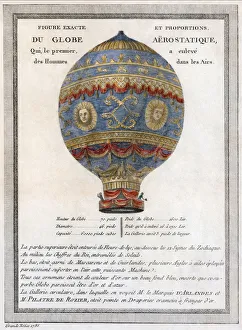 FIGURE EXACTE ET PROPORTIONS
DU GLOBE AËROSTATIQUE,
Qui, le premier, a enlevé
des Hommes dans les Airs.
Hauteur du Globe 70. pieds
Poids du Globe
Diametre 46. pieds
Capacité 60000 pieds cubes
La partie supérieur étoit entourée de Fleurs-de-lys; au-dessous les 12. Signes du Zodiaque.
Au milieu les Chiffres du Roi, entremêlés de Soleils.
Le bas, étoit garni de Mascarons et de Guirlandes; plusieurs Aigles à ailes éployées
paroissoient supporter en l'air cette puissante Machine.
Tous ces ornemens étoient de couleur d'or sur un beau fond bleu,
Globe paroissoit être d'or et d'azur.
La Gallerie circulaire, dans laquelle on voyoit M. le Marquis D'ARLANDES et
M. PILATRE DE ROZIER, étoit peinte en Draperies cramoisi à franges d'or.